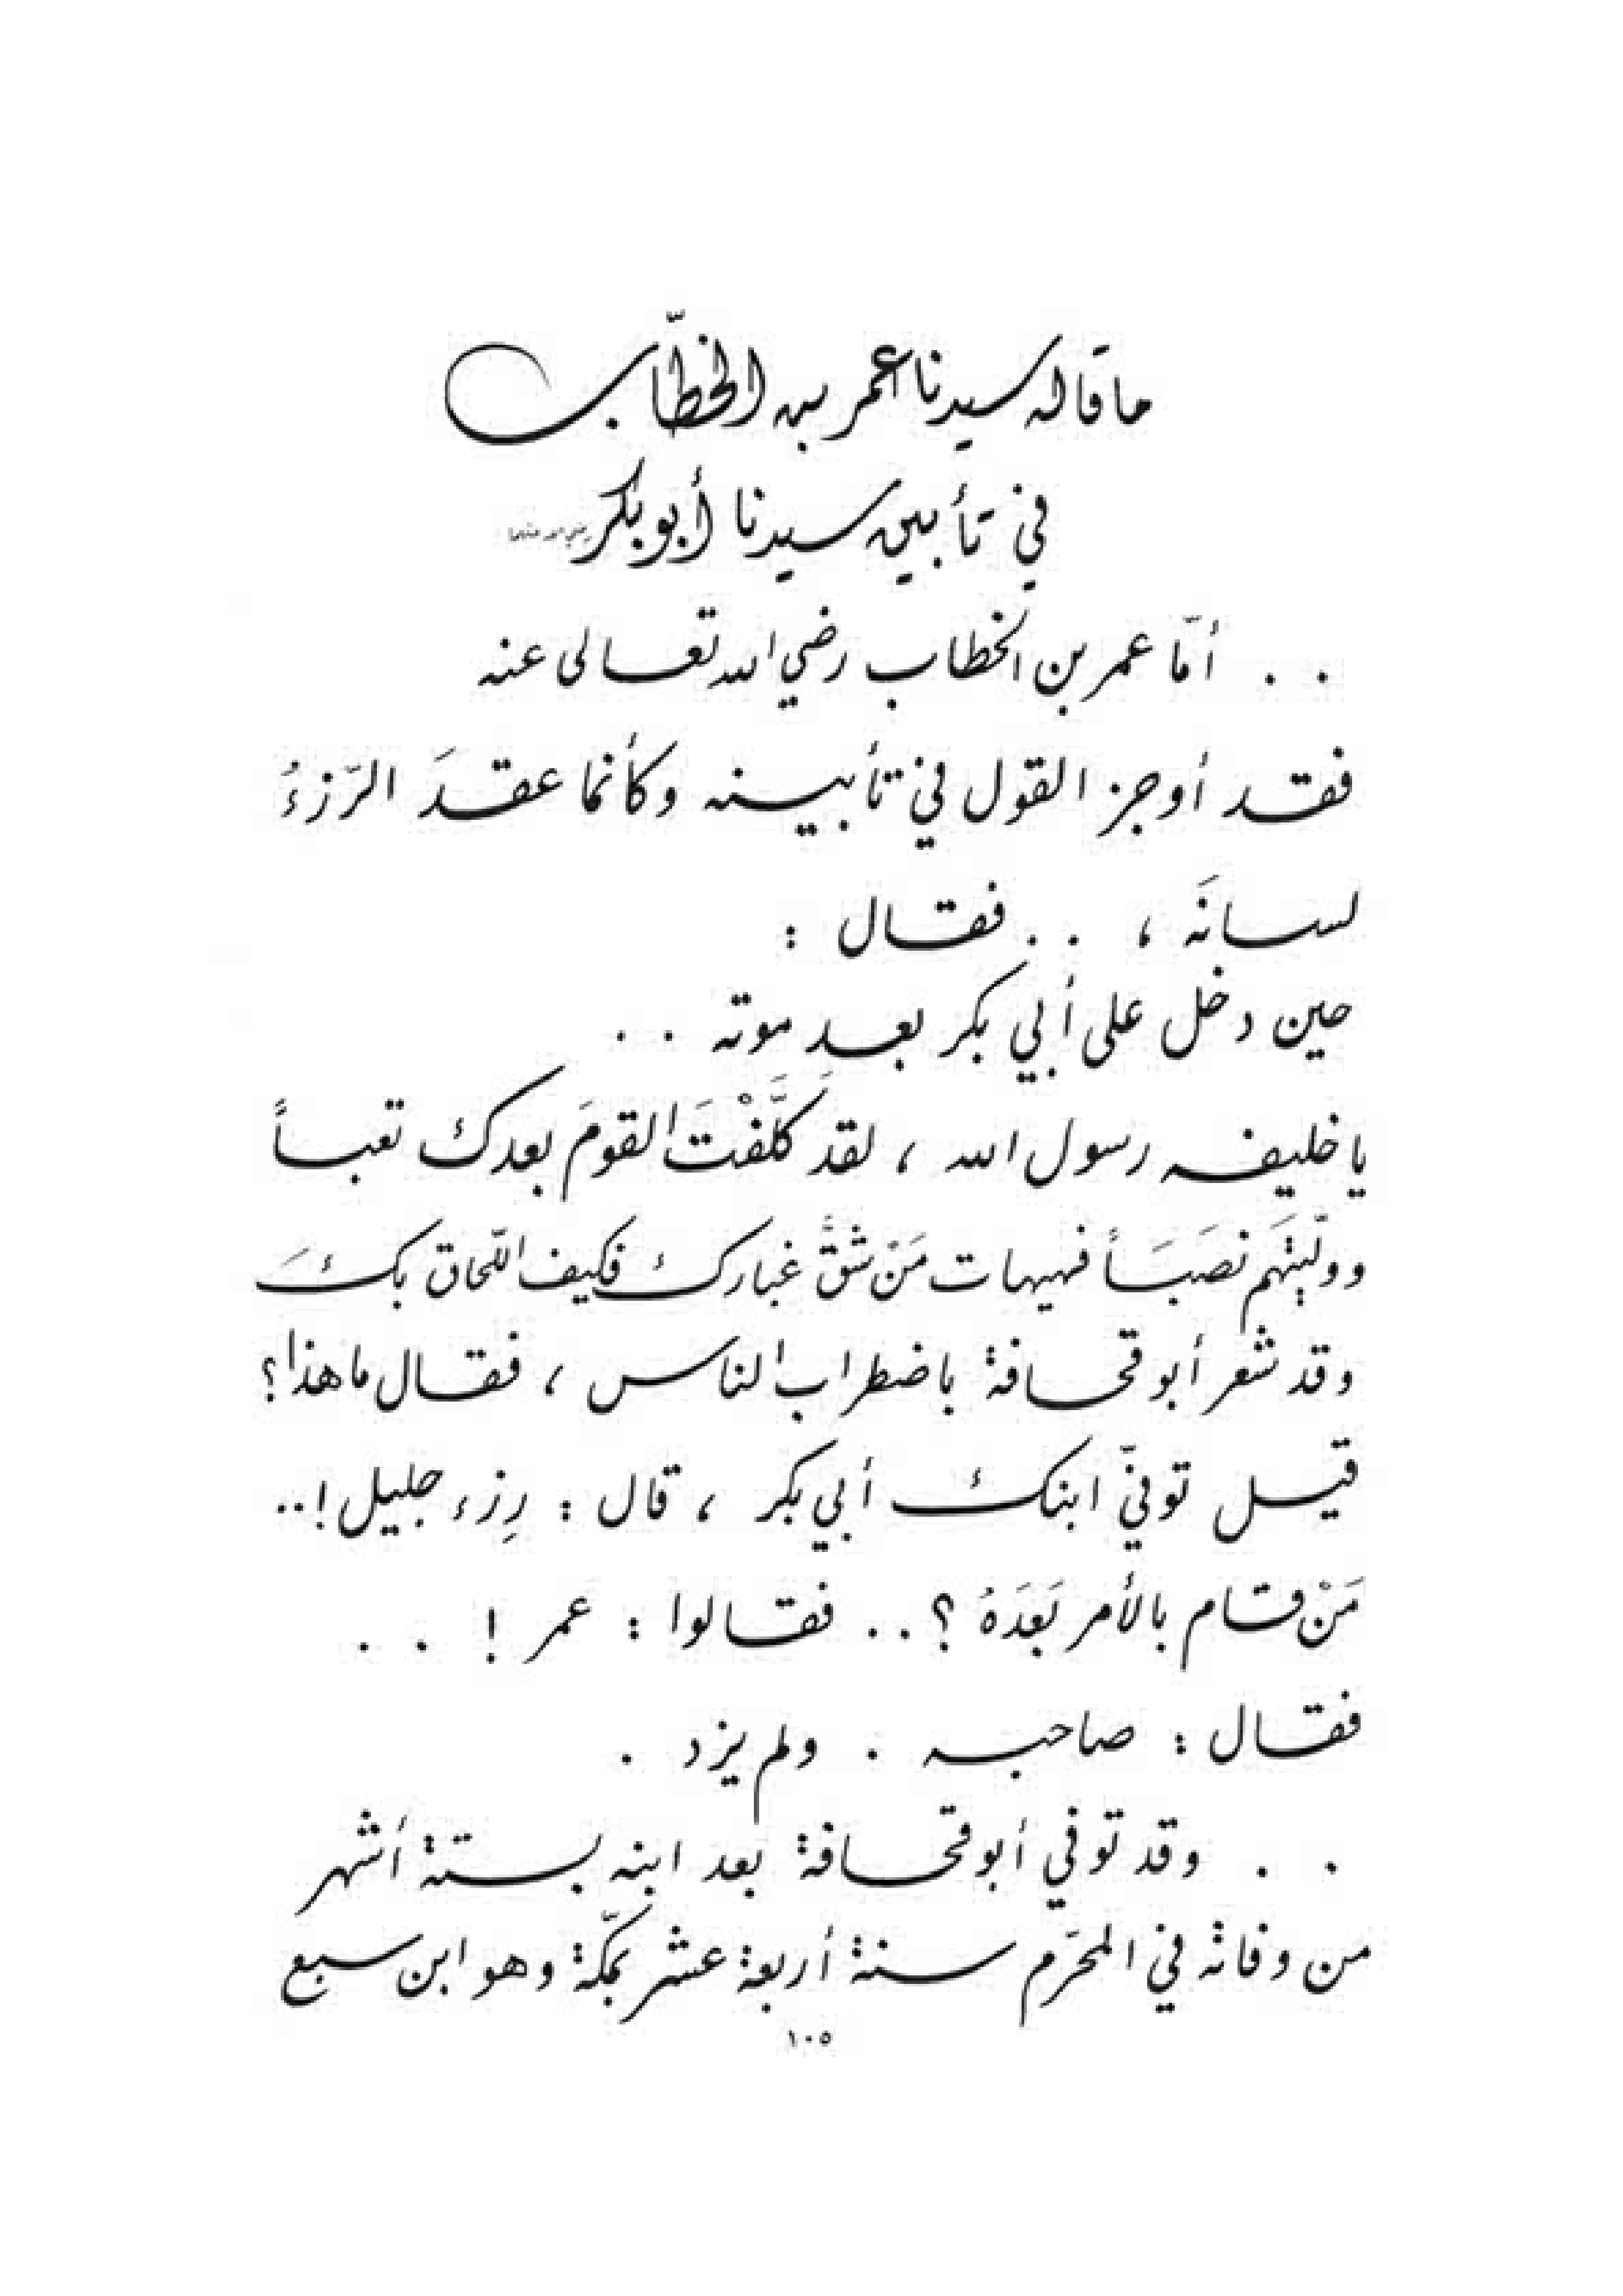 ما قاله سيدنا عمر بن الخطّاب
في تأبين سيدنا أبو بكر رضي الله عنهما
. . أمّا عمر بن الخطاب رضي الله تعالى عنه
فقد أوجز القول في تأبينه وكأنما عقدَ الرّزءُ
لسانَه ، . . فقال :
حين دخل على أبي بكر بعد موته . .
يا خليفه رسول الله ، لقد كَلَّفْتَ القومَ بعدك تعباً
وولّيتَهم نصَبَاً فهيهات مَنْ شقُّ غبارك فكيف اللّحاق بكَ
وقد شعر أبو قحافة باضطراب الناس ، فقال ما هذا ؟
قيل توفيّ ابنك أبي بكر ، قال : رِزء جليل ! ..
مَنْ قام بالأمر بَعَدَهُ ؟ .. فقالوا : عمر ! . .
فقال : صاحبه . ولم يزد .
. . وقد توفي أبو قحافة بعد ابنه بستة أشهر
من وفاته في المحرّم سنة أربعة عشر بمكّة وهو ابن سبع
١٠٥